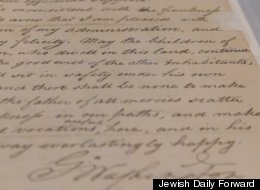 inconsistent with the frankness
avow that I am pleased with
of my administration, and
felicity. May the Children of
who dwell in this land, continue
the good will of the other Inhabitants,
sit in safety under his own
and there shall be none to make
the father of all mercies scatter
in our paths, and make
useful
vocations, here, and in his
way everlastingly happy.
G. Washington
Jewish Daily Forward